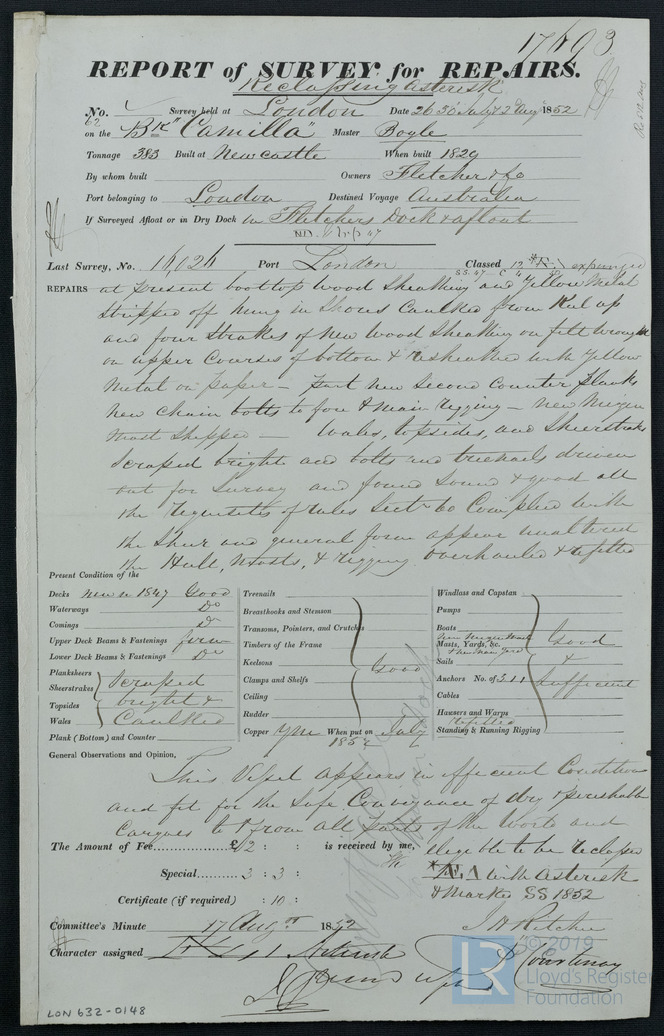 17693
REPORT of SURVEY for REPAIRS.
Reclassing Asterisk
No. Survey held at London Date 26 30 July 2 Aug 1852
on the Bk "Camilla" Master Boyle
Tonnage 383 Built at Newcastle When built 1829
By whom built Owners Fletcher & Co
Port belonging to London Destined Voyage Australia
If Surveyed Afloat or in Dry Dock in Fletchers Dock & afloat
Last Survey, No. 16,026 Port London Classed 12 *Æ1 expunged
REPAIRS at present boottop Wood Sheathing and Yellow Metal
stripped off hung in Shores Caulked from Keel up
and four Strakes of New Wood Sheathing on felt wrought
on upper Courses of bottom & resheathed with Yellow
Metal on paper — Part new Second Counter planks
New Chain bolts to fore & main rigging — New Mizen
Mast Shipped — Wales, topsides, and Sheerstrakes
Scraped bright and bolts and treenails driven
out for Survey and found Sound & good all
the requisites of rules Sect 60 Complied with
the Sheer and general form appear unaltered
the Hull, Masts, & rigging overhauled & refitted
Present Condition of the
Decks new in 1847 Good
Waterways Do
Comings Do
Upper Deck Beams & Fastenings firm
Lower Deck Beams & Fastenings Do
Planksheers
Sheerstrakes
Topsides
Wales
Scraped bright & Caulked
Plank (Bottom) and Counter
Treenails
Breasthooks and Stemson
Transoms, Pointers, and Crutches
Timbers of the Frame
Keelsons
Clamps and Shelfs
Ceiling
Rudder
Good
Copper YM When put on July 1852
Windlass and Capstan
Pumps
Boats
New Mizen Mast
Masts, Yards, &c.
& Fore Main Yard
Sails
Anchors No. of 3.1.1
Cables
Hawsers and Warps
Refitted
Standing & Running Rigging
Good & Sufficient
General Observations and Opinion,
This Vessel appears in efficient Condition
and fit for the Safe Conveyance of dry & perishable
Cargoes to & from all Parts of the World and
eligible to be reclassed
*Æ1 with Asterisk
& Marked SS 1852
The Amount of Fee £ 2 : : is received by me,
Special 3 : 3 :
Certificate (if required) : 10 :
J H Ritchie
Committee's Minute 17 Augst 1852
Character assigned Æ 1 Asterisk
Courtenay
LON 632-0148
© 2019
LR
Lloyd's Register
Foundation